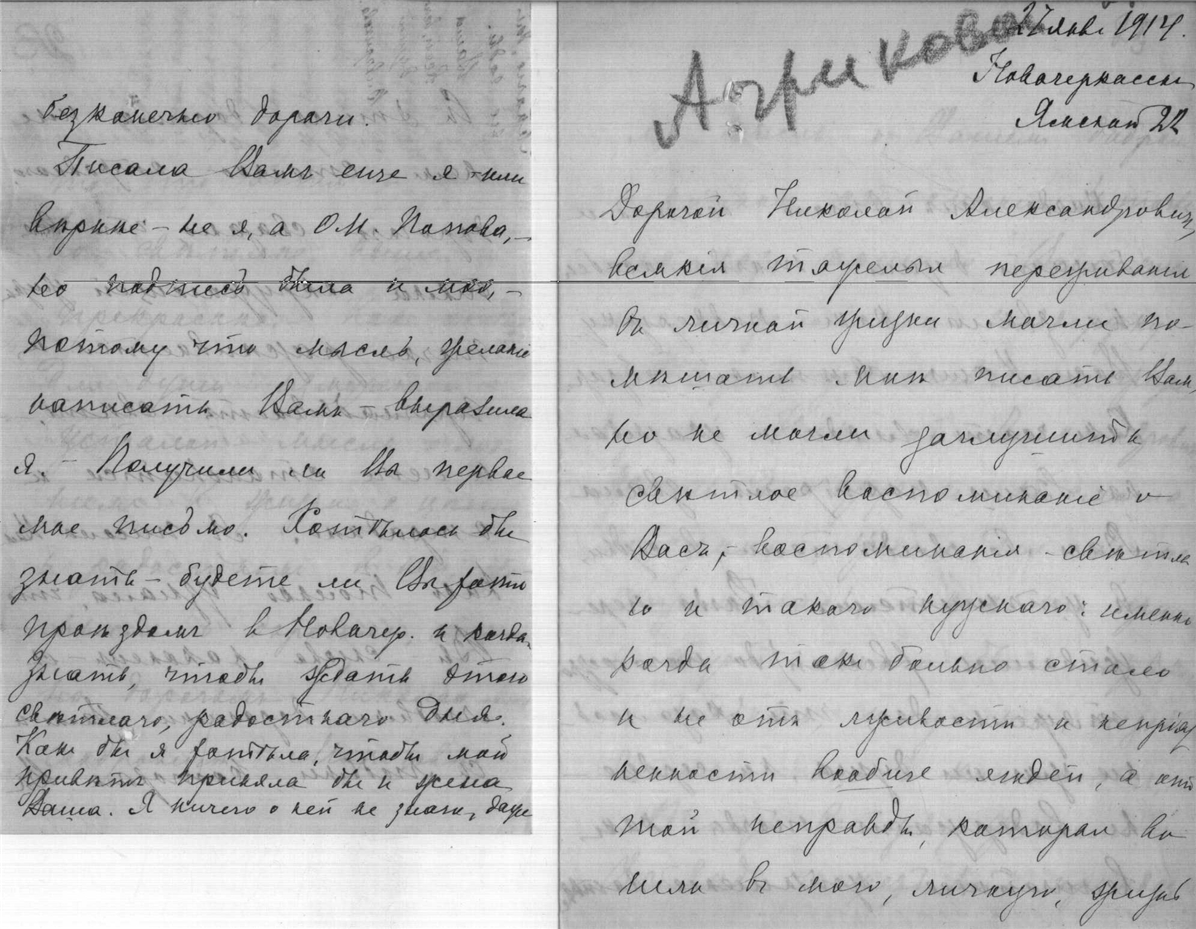 безконечно дороги.
Писала Вамъ еще я или
вѣрнѣе – не я, а О.М. Попова, –
но подпись была и моя, –
потому что мысль, желаніе
написать Вамъ – выразила
я. – Получили ли Вы первое
мое письмо. Хотѣлось бы
знать – будете ли Вы хотя
проѣздомъ в Новочер. и когда
знать, чтобы ждать этого
свѣтлаго, радостнаго дня.
Какъ бы я хотѣла, чтобы мой
привѣтъ приняла бы и жена
Ваша. Я ничего о ней не знаю, даже
27 янв. 1914.
Новочеркасскъ
Ямская 22
Дорогой Николай Александрович,
всякія тяжелыя переживанія
въ личной жизни могли по-
мѣшать мнѣ писать Вамъ,
но не могли заглушить
свѣтлое воспоминаніе о
Васъ, – воспоминанія – свѣтла
го и такого нужнаго: именно
когда такъ больно стало
и не отъ лживости и непріяз
ненности вообще людей, а отъ
той неправды, которая во
шла въ мою, личную, жизнь